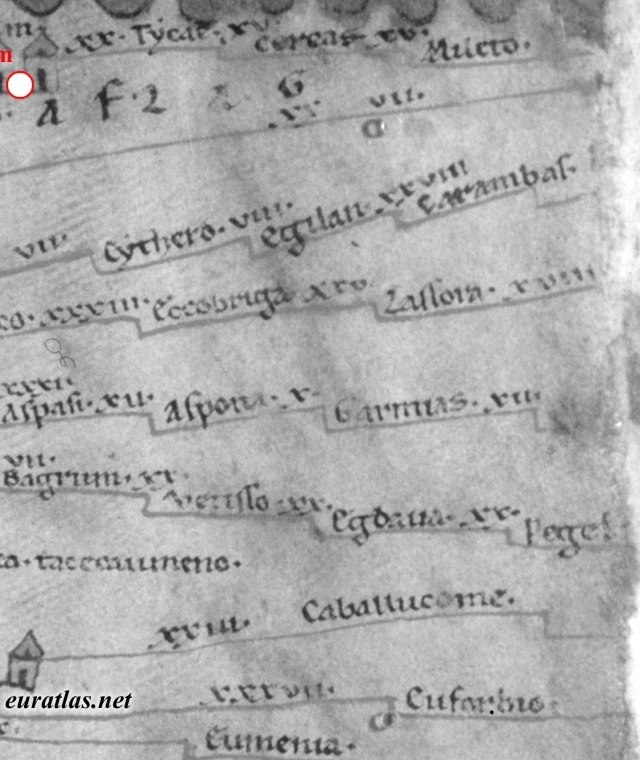 m
xx. Tycae. xv. Cereas. xv. Mileto.
A F. 2 G
xv vii.
vii. Cythero. viii. egilan. xxviii Carambas.
co. xxxiii. Eccobriga xxv Lassora. xviii
xxxi.
Aspasi. xii. Aspona. x. Garmias. xii.
vii.
Bagrum. xx. Vetisso. xx. Egdaua. xx. Pege
taccauimeno.
xxiii. Caballucome.
euratlas.net
xxxvii. Cufarbno.
Eumenia.